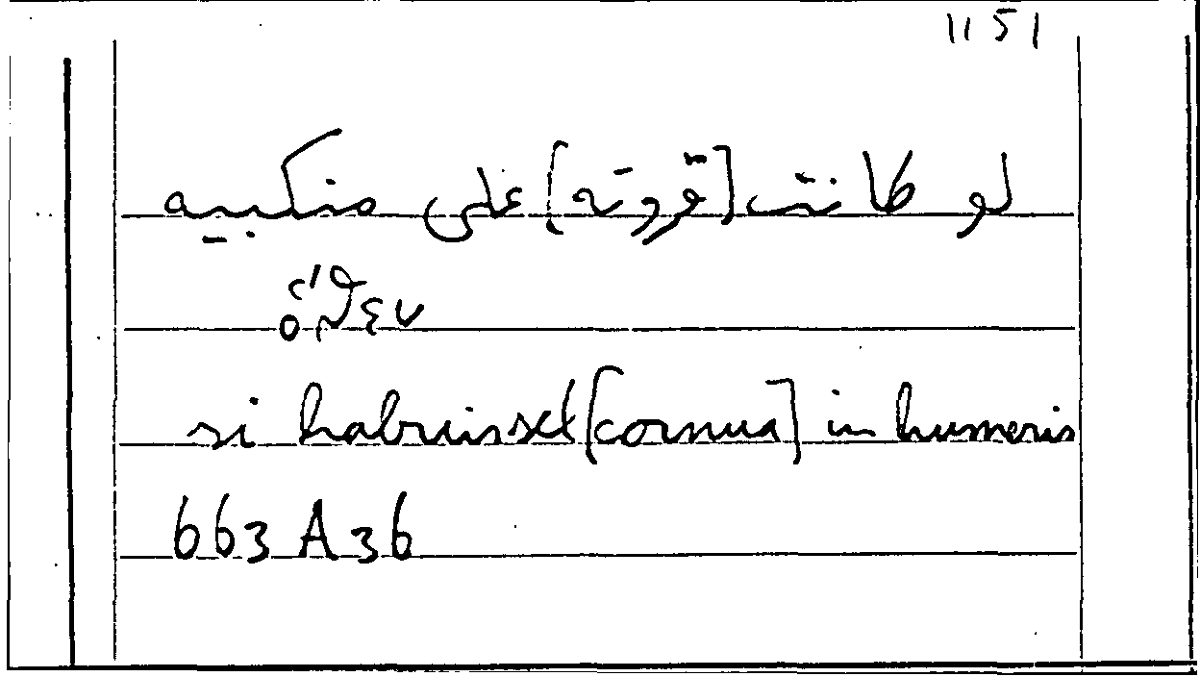 1151
لو كانت [قرونه] على منكبيه
si habuisset [cornua] in humeris
663 A 36